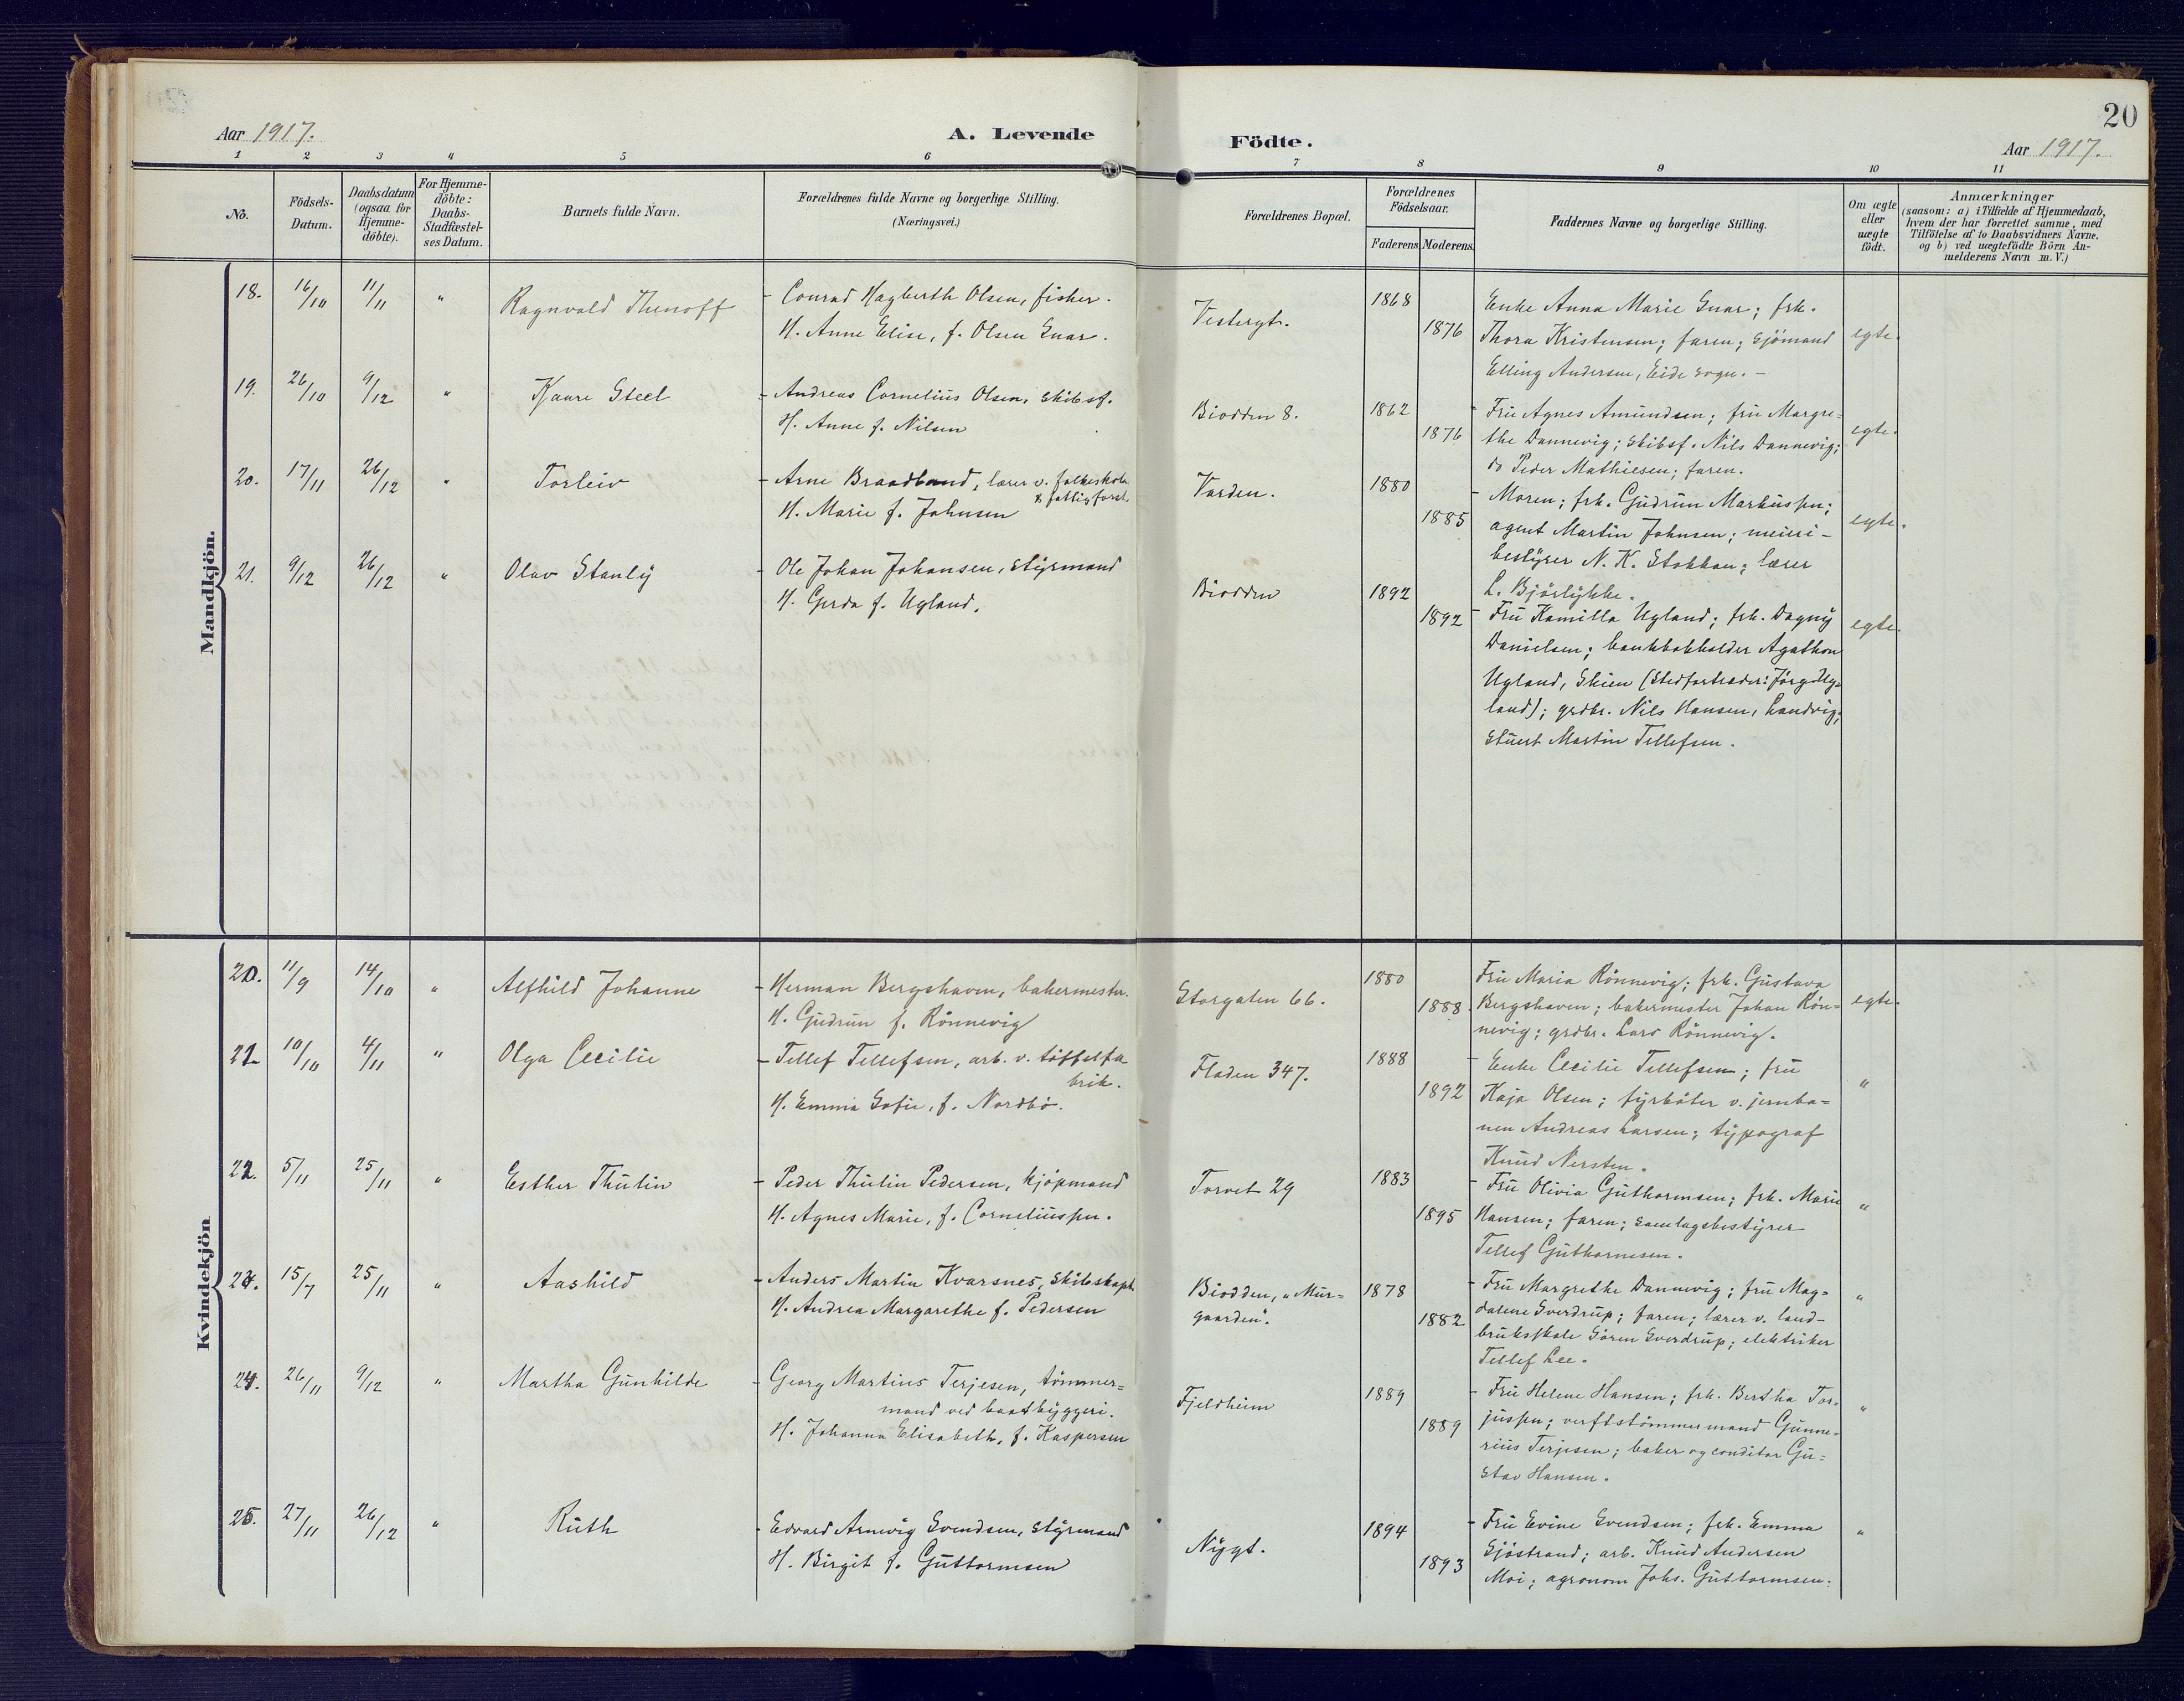 20
Aar 1917.
A. Levende
Födte.
Aar 1917.
1 2 3 4 5 6 7 8 9 10 11
No.
Födsels-
Datum.
Daabsdatum
(ogsaa for
Hjemme-
döbte).
For Hjemme-
döbte:
Daabs-
Stadfæstel-
ses Datum.
Barnets fulde Navn.
Forældrenes fulde Navne og borgerlige Stilling.
(Næringsvei.)
Forældrenes Bopæl.
Forældrenes
Födselsaar.
Faderens Moderens
Faddernes Navne og borgerlige Stilling.
Om ægte
eller
uægte
födt.
Anmærkninger
(saasom: a) i Tilfælde af Hjemmedaab,
hvem der har forrettet samme, med
Tilföielse af to Daabsvidners Navne,
og b) ved uægtefödte Börn An-
melderens Navn m. V.)
Mandkjön.
18. 16/10 11/11 " Ragnvald Thenoff
- Conrad Hagberth Olsen, fisker.
H. Anne Elise, f. Olsen Enar.
Vestergt.
1868
1876
Enke Anna Marie Enar; frk.
Thora Kristensen; faren; sjömand
Elling Andersen, Eide sogn. -
egte.
19. 26/10 9/12 " Kaare Steel
- Andreas Cornelius Olsen, skibsf.
H. Anne f. Nilsen
Biodden 8.
1862
1876
- Fru Agnes Amundsen; fru Margre=
the Dannevig; skibsf. Nils Dannevig;
do Peder Mathiesen; faren.
egte.
20. 17/11 26/12 " Torleiv
- Arne Braadland, lærer v. folkeskole
& fattigforst.
H. Marie f. Johnsen
Varden.
1880
1885
- Moren; frk. Gudrun Markussen;
agent Martin Johnsen; meieri-
bestyrer N. K. Stokkan; lærer
L. Bjørlykke.
egte.
21. 9/12 26/12 " Olav Stanly
- Ole Johan Johansen, styrmand
H. Gerda f. Ugland.
Biodden
1892
1892
- Fru Kamilla Ugland; frk. Dagny
Danielsen; bankbokholder Agathon
Ugland, Skien (stedfortræder: Jørg. Ug=
land); grdbr. Nils Hansen, Landvig;
stuert Martin Tellefsen.
egte.
Kvindekjön
20. 11/9 14/10 " Alfhild Johanne
- Herman Bergshaven, bakermester.
H. Gudrun f. Rönnevig
Storgaten 66.
1880
1888.
Fru Maria Rönnevig; frk. Gustava
Bergshaven; bakermester Johan Rön=
nevig; grdbr. Lars Rönnevig.
egte.
21. 10/10 4/11 " Olga Cecilie
- Tellef Tellefsen, arb. v. töffelfa
brik.
H. Emma Sofie, f. Nordbö.
Fladen 347.
1888
1892
- Enke Cecilie Tellefsen; fru
Kaja Olsen; fyrböter v. jernba=
nen Andreas Larsen; typograf
Knud Nersten.
"
22. 5/11 25/11 " Esther Thulin
- Peder Thulin Pedersen, kjöpmand
H. Agnes Marie, f. Corneliussen.
Torvet 29
1883
1895
- Fru Olivia Guthormsen; frk. Marie
Hansen; faren; samlagsbestyrer
Tellef Guthormsen.
"
23. 15/7 25/11 " Aashild
- Anders Martin Kvarsnes, skibskapt.
H. Andrea Margarethe f. Pedersen
Biodden, "Mur-
gaarden".
1878
1882
- Fru Margrethe Dannevig; fru Mag=
dalene Sverdrup; faren; lærer v. land-
bruksskole Sören Sverdrup; elektriker
Tellef Lee.
"
24. 26/11 9/12 " Martha Gunhilde
- Georg Martius Terjesen, tömmer=
mand ved baatbyggeri.
H. Johanna Elisabeth, f. Kaspersen
Fjeldheim
1889
1889
- Fru Helene Hansen; frk. Bertha Tor=
jussen; verftstömmermand Gunne=
rius Terjesen; baker og conditor Gu=
stav Hansen.
"
25. 27/11 26/12 " Ruth
- Edvard Arnevig Svendsen, styrmand
H. Birgit f. Guttormsen
Nygt.
1894
1893
- Fru Evine Svendsen; frk. Emma
Sjöstrand; arb. Knud Andersen
Moi; agronom Johs. Guttormsen.
"